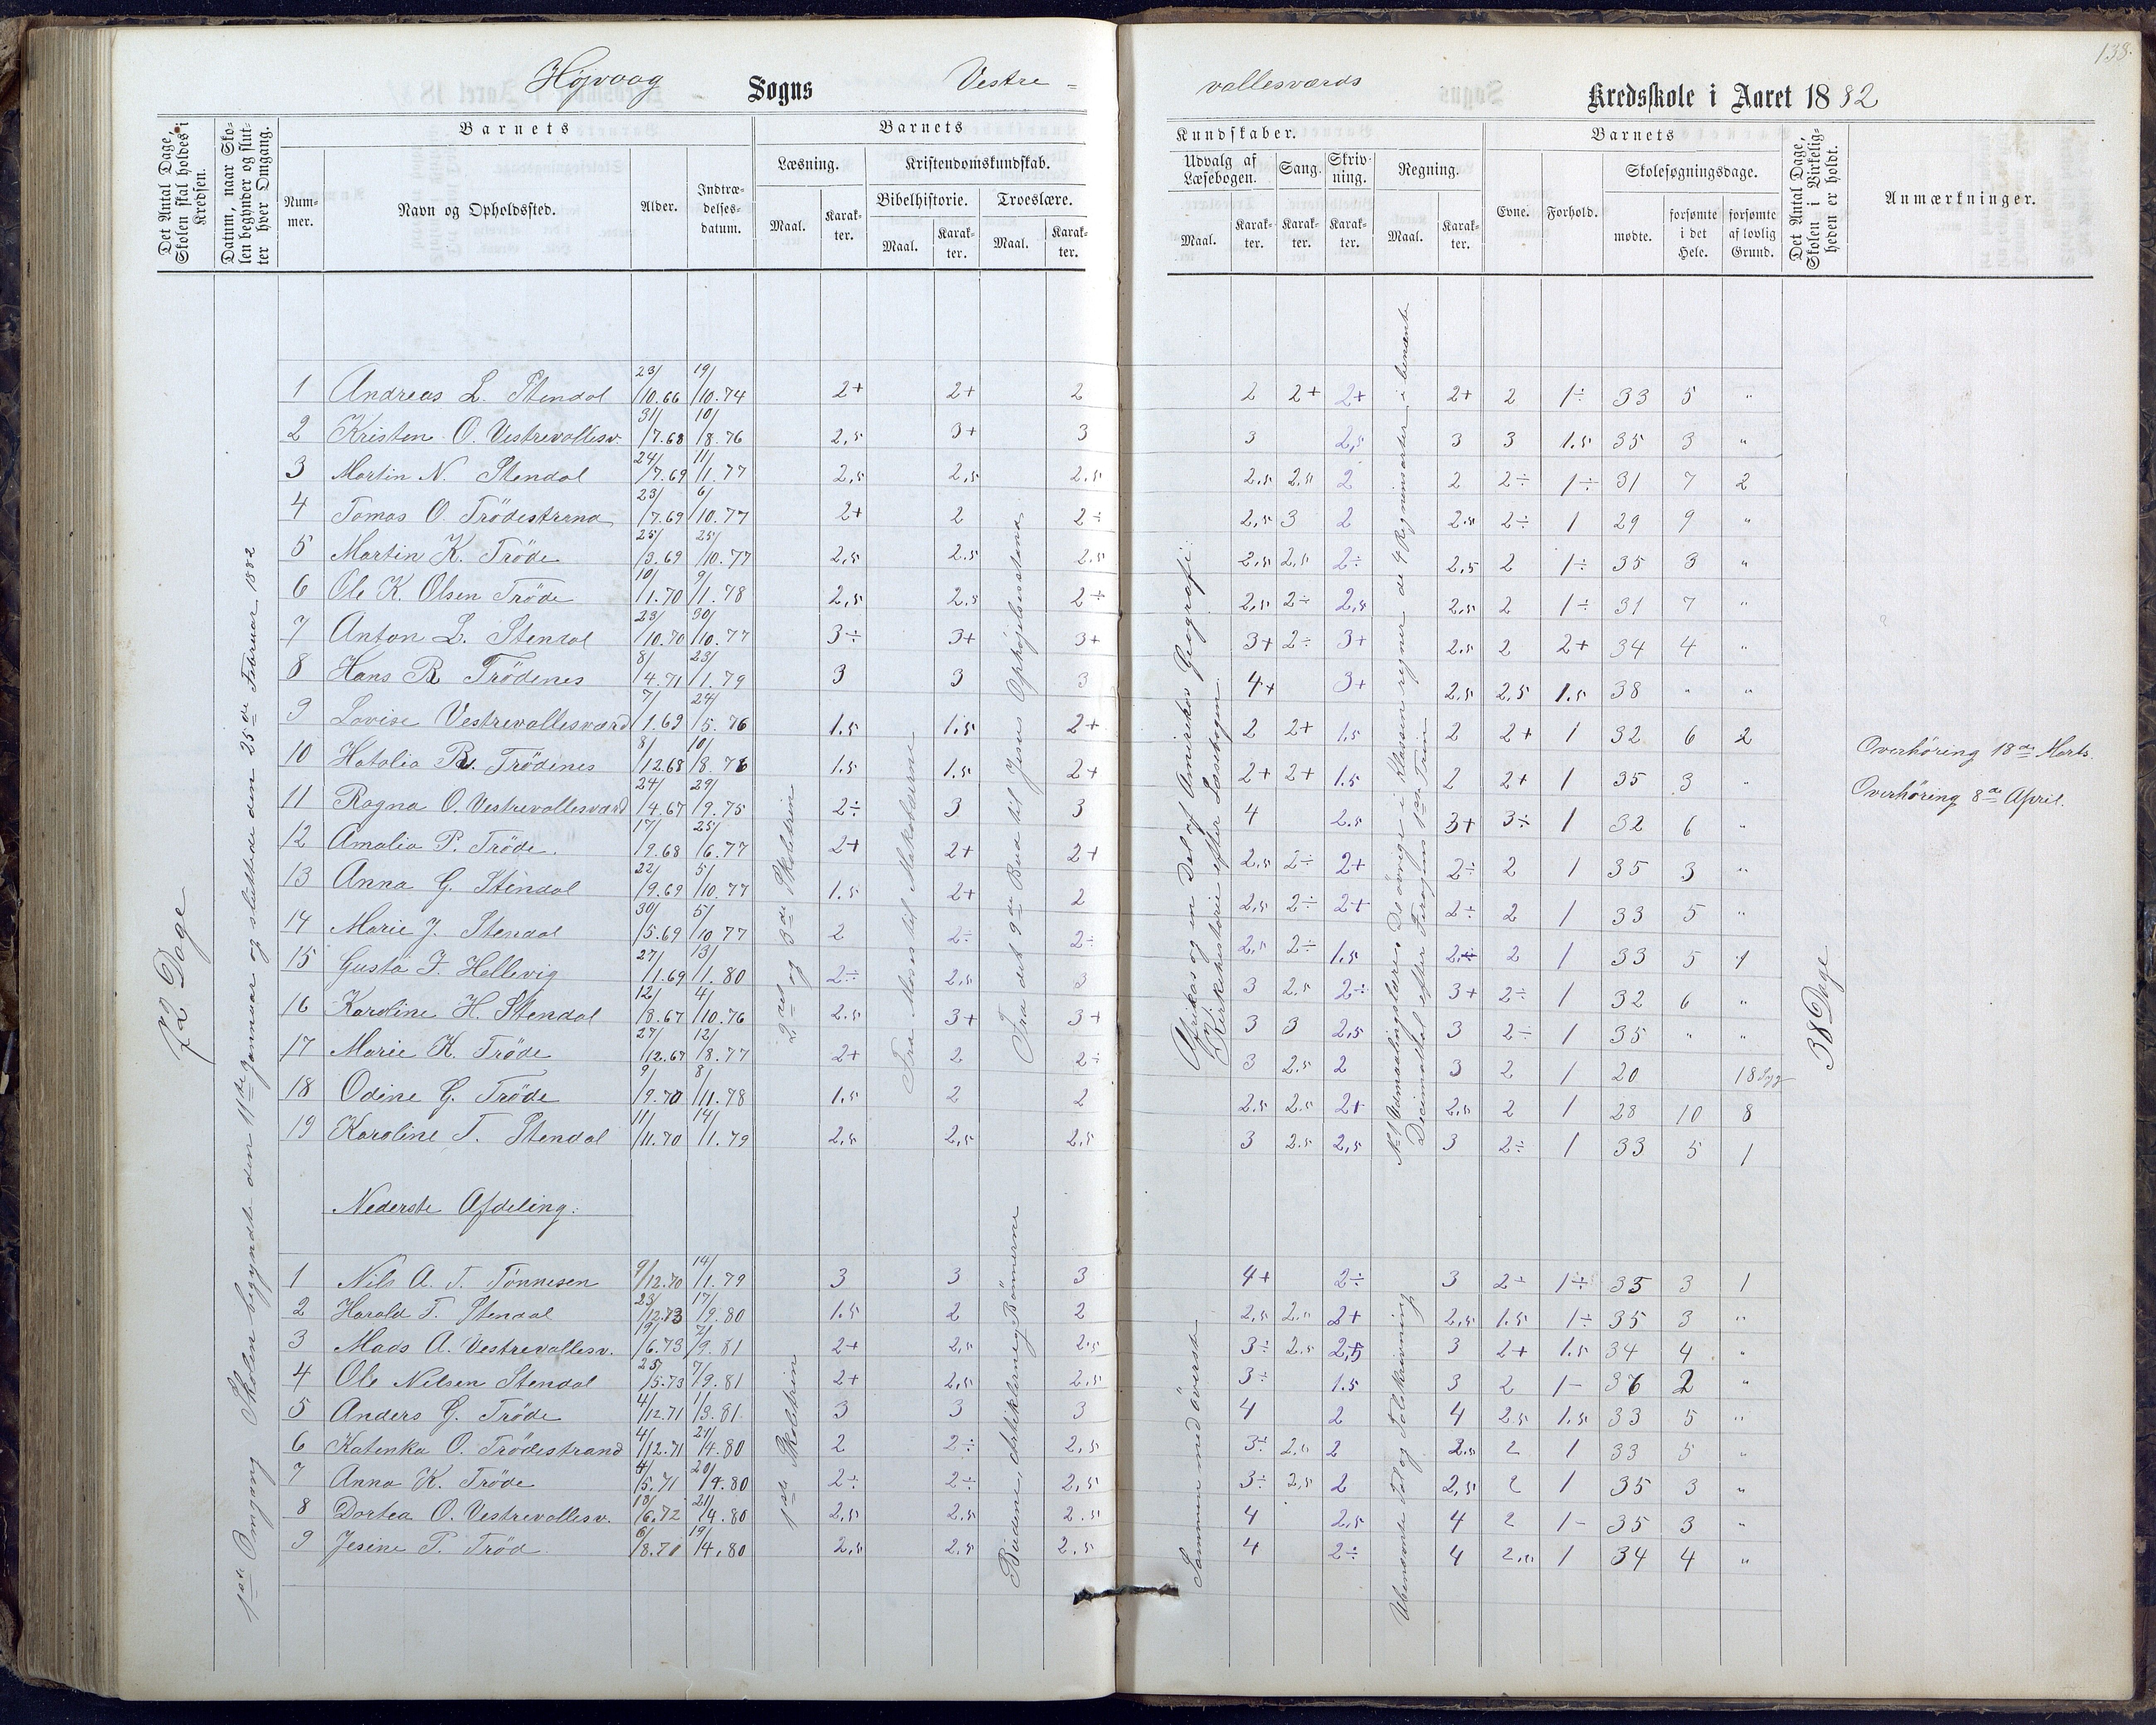 138.
Højvaag Sogns Vestre-
vallesværds Kredsskole i Aaret 1882
Det Antal Dage, Skolen skal holdes i Kredsen.
Datum, naar Skolen begynder og slutter hver Omgang.
Barnets
Nummer.
Navn og Opholdssted.
Alder.
Indtrædelsesdatum.
Barnets
Læsning.
Maal.
Karakter.
Kristendomskundskab.
Bibelhistorie.
Maal.
Karakter.
Troeslære.
Maal.
Karakter.
Kundskaber.
Udvalg af Læsebogen.
Maal.
Karakter.
Sang.
Karakter.
Skrivning.
Karakter.
Regning.
Maal.
Karakter.
Barnets
Evne.
Forhold.
Skolesøgningsdage.
mødte.
forsømte i det Hele.
forsømte af lovlig Grund.
Det Antal Dage, Skolen i Virkeligheden er holdt.
Anmærkninger.
72 Dage
1ste Omgang Skolen begyndte den 11te Januar og sluttede den 25de Februar 1882
2det og 3de Skoletrin
Fra Moses til Makabæerne
Fra det 9de Bud til Jesu Ophøjelsesstand
Afrikas og en Del af Amerikas Geografi.
Kirkehistorie efter Læsebogen.
No 1 Udmaalingslære. De øvrige i Klassen regner de 4 Regningsarter i benævnte
Decimaltal efter Foroglms 1ste Trin
38 Dage
1 Andreas L. Stendal 23/10.66 19/10.74 2+ 2+ 2 2 2+ 2+ 2+ 2 1÷ 33 5 "
2 Kristen O. Vestrevallesv. 31/7.68 10/8.76 2,5 3+ 3 3 2,5 3 3 1.5 35 3 "
3 Martin N. Stendal 24/7.69 11/1.77 2,5 2,5 2.5 2.5 2.5 2 2 2÷ 1÷ 31 7 2
4 Tomas O. Trödestrand 23/7.69 6/10.77 2+ 2 2÷ 2,5 3 2 2.5 2÷ 1 29 9 "
5 Martin K. Tröde 25/3.69 25/10.77 2,5 2.5 2.5 2,5 2,5 2÷ 2.5 2 1÷ 35 3 "
6 Ole K. Olsen Tröde 10/1.70 9/1.78 2,5 2.5 2÷ 2,5 2÷ 2,5 2.5 2 1÷ 31 7 "
7 Anton L. Stendal 23/10.70 30/10.77 3÷ 3+ 3+ 3+ 2÷ 3+ 2.5 2 2+ 34 4 "
8 Hans R Trödenes 8/4.71 23/1.79 3 3 3 4+ 3+ 2,5 2,5 1.5 38 " "
9 Lovise Vestrevallesværd 7/1.69 24/5.76 1.5 1.5 2+ 2 2+ 1.5 2 2+ 1 32 6 2 Overhøring 18de Marts.
10 Hatalia R. Trödenes 8/12.68 10/8.76 1.5 1.5 2+ 2+ 2+ 1.5 2 2+ 1 35 3 " Overhøring 8de April.
11 Ragna O. Vestrevallesværd 24/4.67 29/9.75 2÷ 3 3 4 2.5 3+ 3÷ 1 32 6 "
12 Amalia P. Tröde. 17/9.68 25/6.77 2+ 2+ 2+ 2.5 2÷ 2+ 2÷ 2 1 35 3 "
13 Anna G. Stendal 22/9.69 5/10.77 1.5 2+ 2 2,5 2÷ 2+ 2÷ 2 1 33 5 "
14 Marie J. Stendal 30/5.69 5/10 77 2 2÷ 2÷ 2.5 2÷ 1.5 2÷ 2 1 33 5 1
15 Gusta F. Hellevig 27/1.69 13/1.80 2÷ 2,5 3 3 2.5 2÷ 3+ 2÷ 1 32 6 "
16 Karoline H. Stendal 12/8.67 4/10.76 2.5 3+ 3+ 3 3 2,5 3 2÷ 1 35 " "
17 Marie K. Tröde 27/12.67 12/8.77 2+ 2 2÷ 3 2.5 2 3 2 1 20 18 Syg
18 Odine G. Tröde 9/9.70 8/11.78 1.5 2 2 2.5 2.5 2+ 2,5 2 1 28 10 8
19 Karoline T. Stendal 11/11.70 14/1.79 2,5 2,5 2,5 3 2.5 2,5 3 2÷ 1 33 5 1
Nederste Afdeling.
1ste Skoletrin
Budene, Artiklerne og Bønnerne
Sammen med överste
Ubenævnte Tal og Talskrivning
1 Nils A. T. Tönnesen 9/12.70 14/1.79 3 3 3 4+ 2÷ 3 2÷ 1÷ 35 3 1
2 Harald T. Stendal 23/12.73 17/9.80 1.5 2 2 2,5 2.5 2+ 2,5 1.5 1÷ 35 3 "
3 Mads A. Vestrevallesv. 19/6.73 7/9.81 2+ 2,5 2.5 3÷ 2.5 2,5 3 2+ 1.5 34 4 "
4 Ole Nilsen Stendal 25/5.73 7/9.81 2+ 2,5 2,5 3÷ 1.5 3 2 1- 36 2 "
5 Anders G. Tröde 4/12.71 1/3.81 3 3 3 4 2 4 2.5 1.5 33 5 "
6 Katinka O. Trödestrand 4/12.71 21/4.80 2 2÷ 2,5 3÷ 2.5 2 2.5 2 1 33 5 "
7 Anna K. Tröde 4/5.71 20/4.80 2÷ 2÷ 2,5 3÷ 2,5 2 2,5 2 1 35 3 "
8 Dortea O. Vestrevallesv. 13/6.72 21/4.80 2,5 2.5 2.5 4 2,5 4 2 1- 35 3 "
9 Jesine P. Tröd 6/8.71 19/4.80 2,5 2.5 2.5 4 2÷ 4 2,5 1 34 4 "